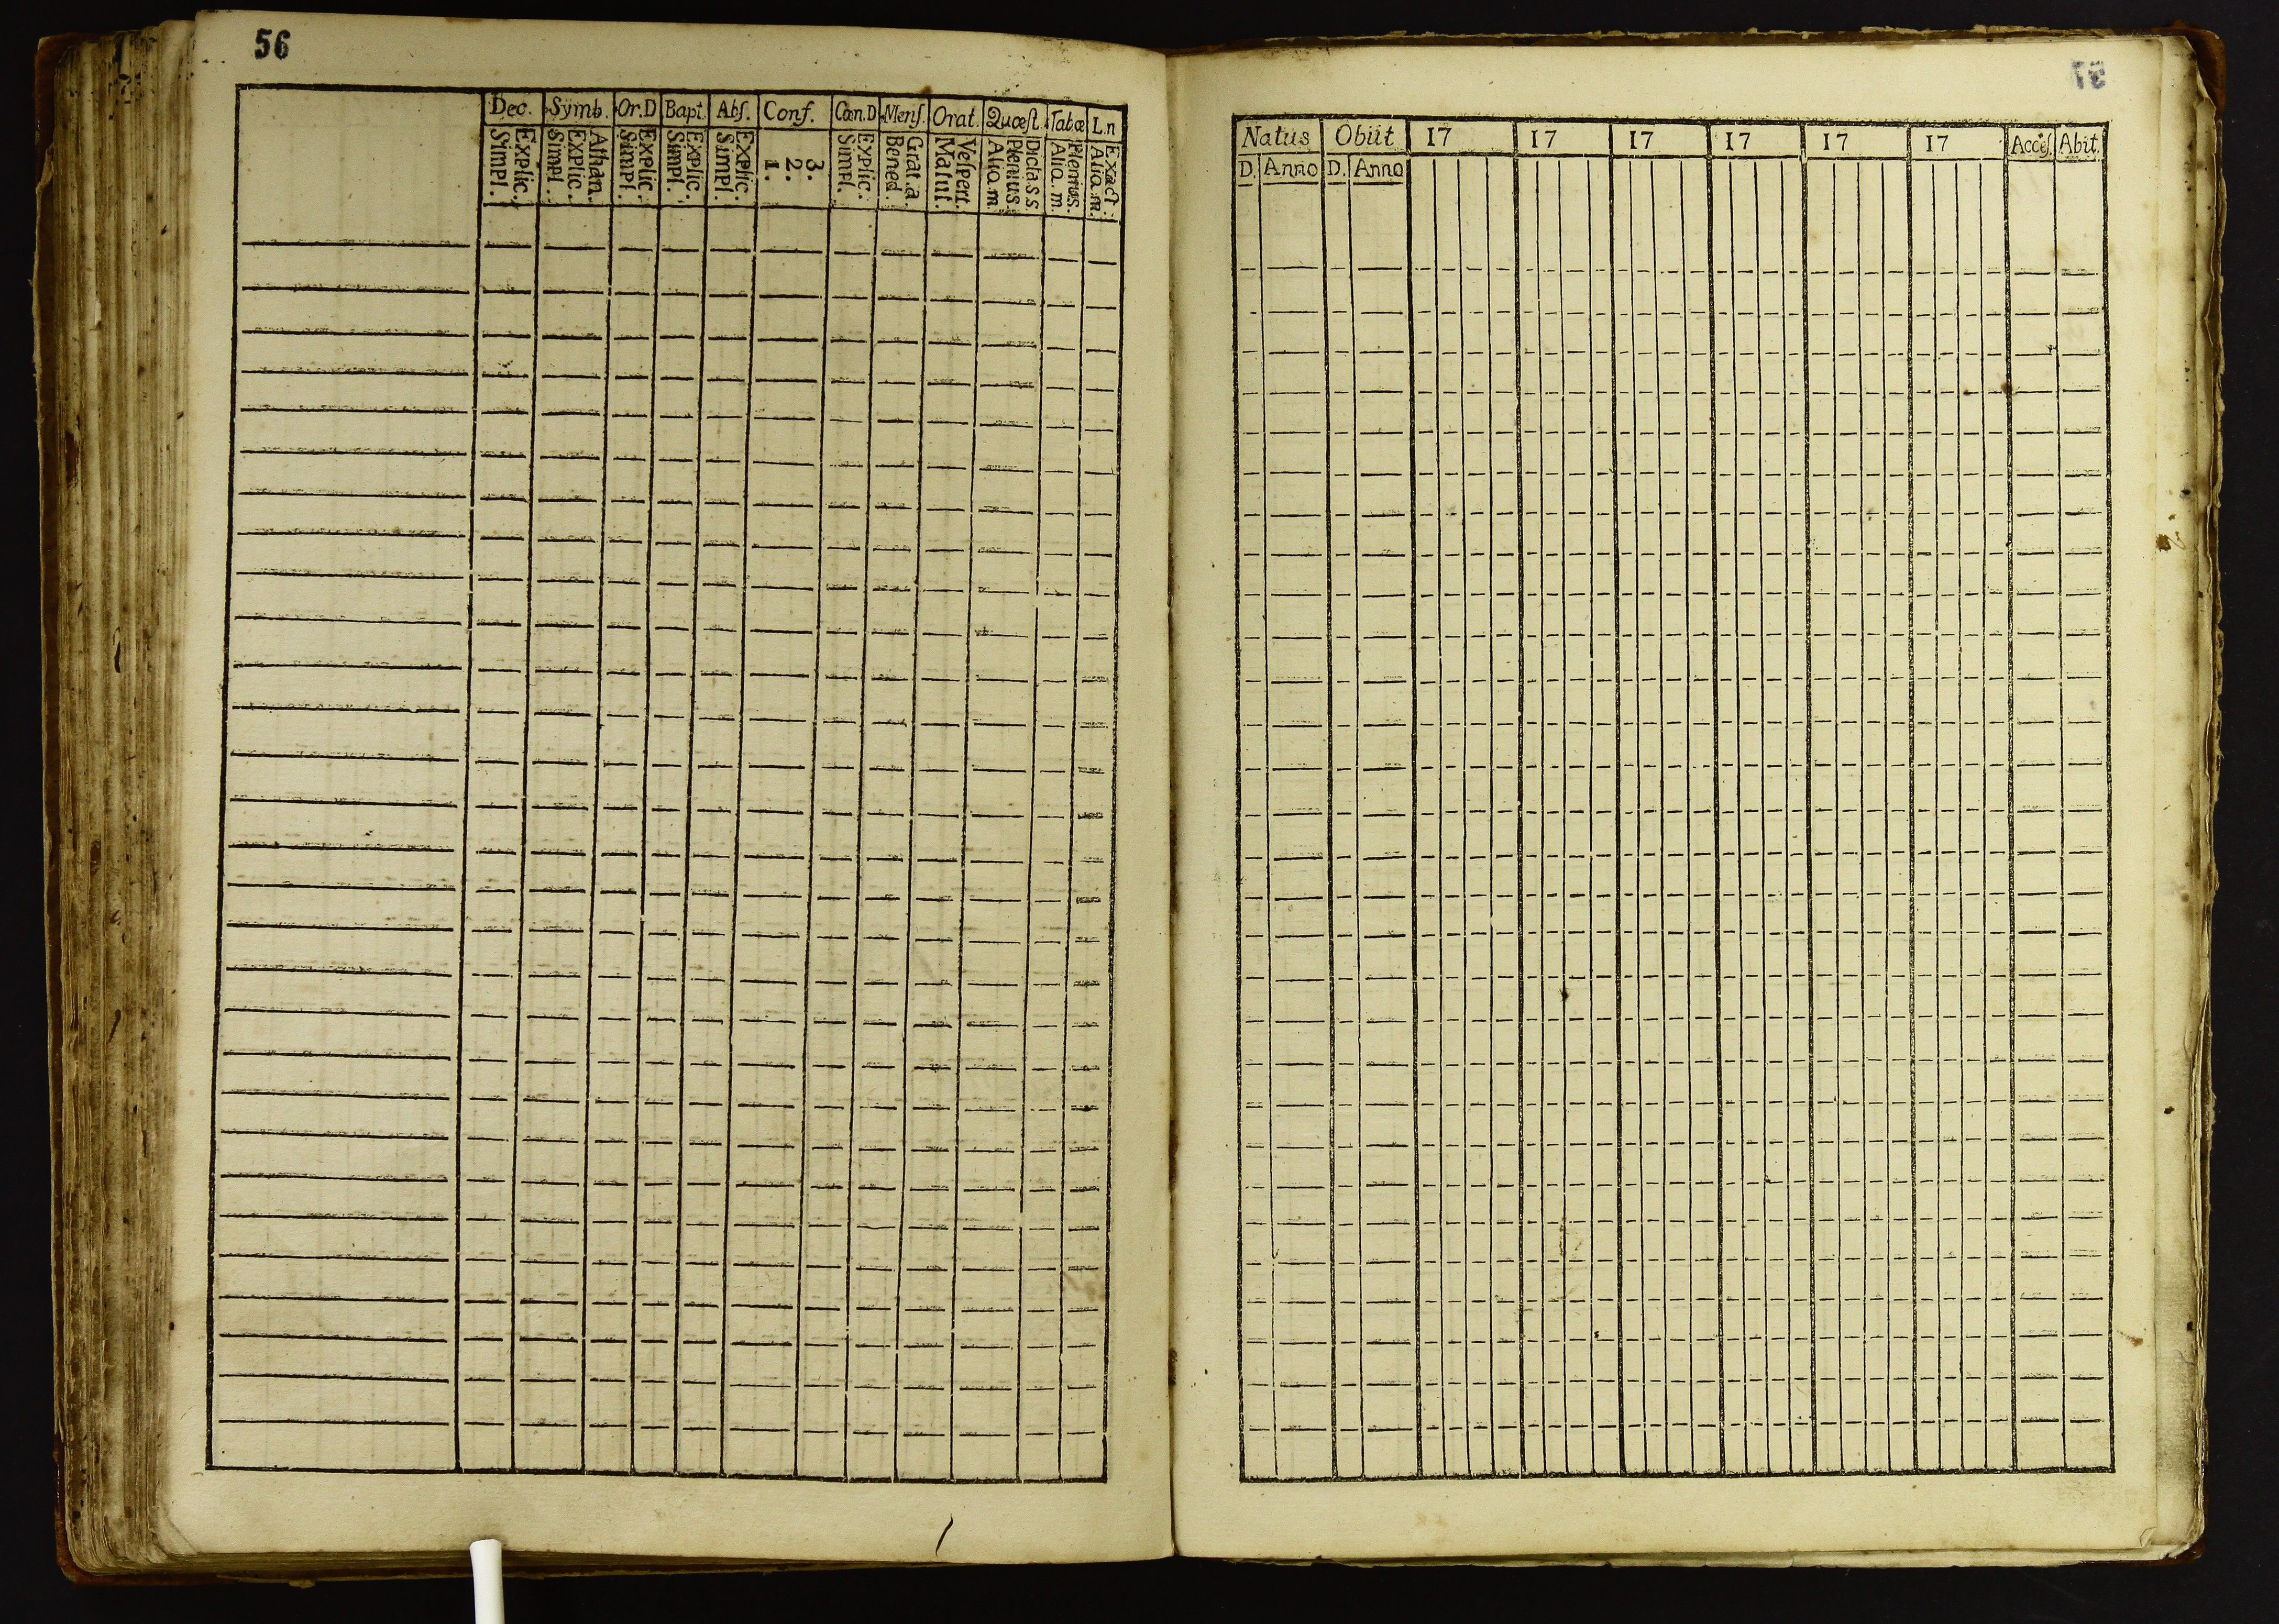 56
Dec. Symb. Or.D Bapt. Abſ. Conf. Cœn.D Menſ. Orat. Quæſt Tab.æ L.n
Explic. Simpl.
Athan. Explic. Simpl.
Explic. Simpl.
Explic. Simpl.
Explic. Simpl.
3. 2. 1.
Explic. Simpl.
Grat.a Bened.
Veſpert. Matut.
Dicta s s. Plenius. Alio.m.
Plenius. Aliq.m.
Exact. Aliq.m.
57
Natus Obiit 17 17 17 17 17 17 Acceſ. Abit.
D. Anno D. Anno